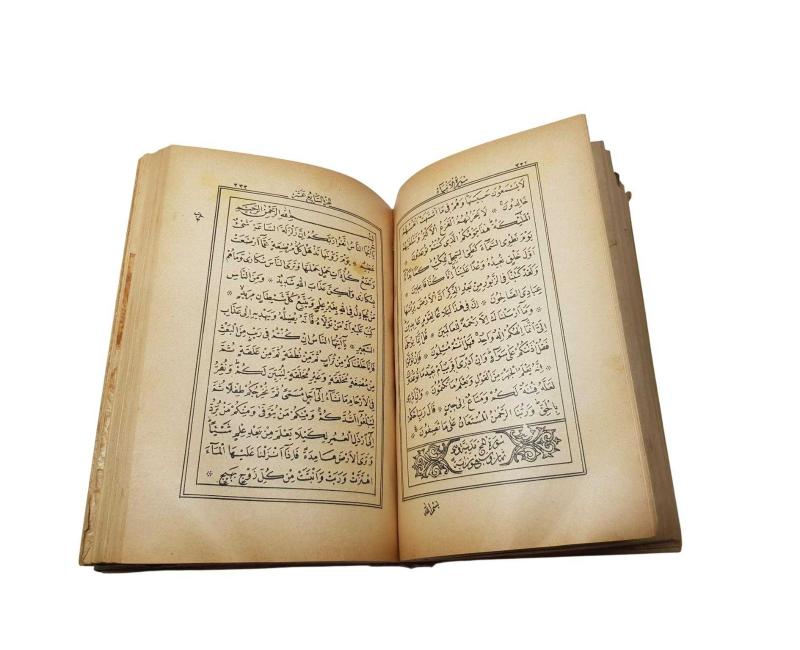 سورة الانبياء
لَا يَسْمَعُونَ حَسِيسَهَا وَهُمْ فِي مَا اشْتَهَتْ اَنْفُسُهُمْ
خَالِدُونَ * لَا يَحْزُنُهُمُ الْفَزَعُ الْاَكْبَرُ وَتَتَلَقّٰيهُمُ
الْمَلٰئِكَةُ هٰذَا يَوْمُكُمُ الَّذِي كُنْتُمْ تُوعَدُونَ *
يَوْمَ نَطْوِي السَّمَاءَ كَطَيِّ السِّجِلِّ لِلْكُتُبِ كَمَا بَدَأْنَا
اَوَّلَ خَلْقٍ نُعِيدُهُ وَعْدًا عَلَيْنَا اِنَّا كُنَّا فَاعِلِينَ *
وَلَقَدْ كَتَبْنَا فِي الزَّبُورِ مِنْ بَعْدِ الذِّكْرِ اَنَّ الْاَرْضَ يَرِثُهَا
عِبَادِيَ الصَّالِحُونَ * اِنَّ فِي هٰذَا لَبَلَاغًا لِقَوْمٍ عَابِدِينَ *
وَمَا اَرْسَلْنَاكَ اِلَّا رَحْمَةً لِلْعَالَمِينَ * قُلْ اِنَّمَا يُوحٰى
اِلَيَّ اَنَّمَا اِلٰهُكُمْ اِلٰهٌ وَاحِدٌ فَهَلْ اَنْتُمْ مُسْلِمُونَ * فَاِنْ تَوَلَّوْا
فَقُلْ اٰذَنْتُكُمْ عَلٰى سَوَاءٍ وَاِنْ اَدْرِي اَقَرِيبٌ اَمْ بَعِيدٌ مَا تُوعَدُونَ
* اِنَّهُ يَعْلَمُ الْجَهْرَ مِنَ الْقَوْلِ وَيَعْلَمُ مَا تَكْتُمُونَ * وَاِنْ اَدْرِي
لَعَلَّهُ فِتْنَةٌ لَكُمْ وَمَتَاعٌ اِلٰى حِينٍ * قَالَ رَبِّ احْكُمْ
بِالْحَقِّ وَرَبُّنَا الرَّحْمٰنُ الْمُسْتَعَانُ عَلٰى مَا تَصِفُونَ
سورة الحج مدنية
بسم الله
الجزء السابع عشر ٣٣٢
بِسْمِ اللهِ الرَّحْمٰنِ الرَّحِيمِ
يَا اَيُّهَا النَّاسُ اتَّقُوا رَبَّكُمْ اِنَّ زَلْزَلَةَ السَّاعَةِ شَيْءٌ
عَظِيمٌ * يَوْمَ تَرَوْنَهَا تَذْهَلُ كُلُّ مُرْضِعَةٍ عَمَّا اَرْضَعَتْ
وَتَضَعُ كُلُّ ذَاتِ حَمْلٍ حَمْلَهَا وَتَرَى النَّاسَ سُكَارٰى وَمَا هُمْ
بِسُكَارٰى وَلٰكِنَّ عَذَابَ اللهِ شَدِيدٌ * وَمِنَ النَّاسِ
مَنْ يُجَادِلُ فِي اللهِ بِغَيْرِ عِلْمٍ وَيَتَّبِعُ كُلَّ شَيْطَانٍ مَرِيدٍ *
كُتِبَ عَلَيْهِ اَنَّهُ مَنْ تَوَلَّاهُ فَاَنَّهُ يُضِلُّهُ وَيَهْدِيهِ اِلٰى عَذَابِ
السَّعِيرِ * يَا اَيُّهَا النَّاسُ اِنْ كُنْتُمْ فِي رَيْبٍ مِنَ الْبَعْثِ
فَاِنَّا خَلَقْنَاكُمْ مِنْ تُرَابٍ ثُمَّ مِنْ نُطْفَةٍ ثُمَّ مِنْ عَلَقَةٍ ثُمَّ
مِنْ مُضْغَةٍ مُخَلَّقَةٍ وَغَيْرِ مُخَلَّقَةٍ لِنُبَيِّنَ لَكُمْ وَنُقِرُّ
فِي الْاَرْحَامِ مَا نَشَاءُ اِلٰى اَجَلٍ مُسَمًّى ثُمَّ نُخْرِجُكُمْ طِفْلًا ثُمَّ
لِتَبْلُغُوا اَشُدَّكُمْ وَمِنْكُمْ مَنْ يُتَوَفّٰى وَمِنْكُمْ مَنْ يُرَدُّ
اِلٰى اَرْذَلِ الْعُمُرِ لِكَيْلَا يَعْلَمَ مِنْ بَعْدِ عِلْمٍ شَيْئًا
وَتَرَى الْاَرْضَ هَامِدَةً فَاِذَا اَنْزَلْنَا عَلَيْهَا الْمَاءَ
اهْتَزَّتْ وَرَبَتْ وَاَنْبَتَتْ مِنْ كُلِّ زَوْجٍ بَهِيجٍ *